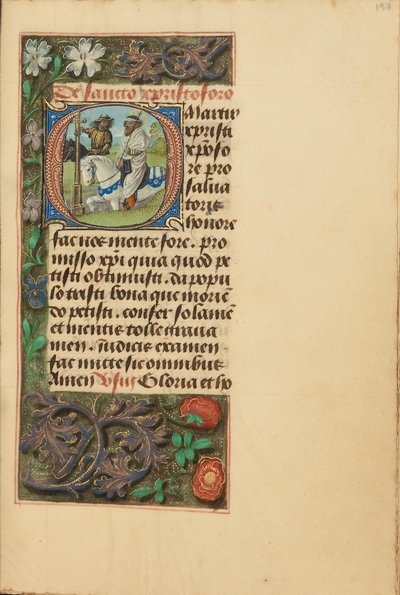 197
De sancto xpristoforo
Martir
xpristi
xpofo
re pro
salua
toris
honore
fac nos mente fore. pro
misso xpi quia quod pe
tisti obtinuisti. da popu
lo tristi bona que morien
do petisti. confer solamē
et mentis tolle graua
men. iudicis examen
fac mitte sit omnibus
Amen vsus Gloria et ho